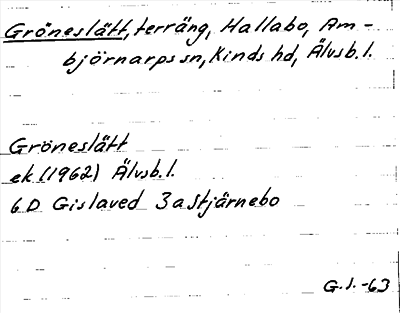 Gröneslätt, terräng, Hallabo, Am-
björnarps sn, Kinds hd, Älvsb. l.
Gröneslätt
ek (1962) Älvsb. l.
6D Gislaved 3a Stjärnebo
G.J. -63